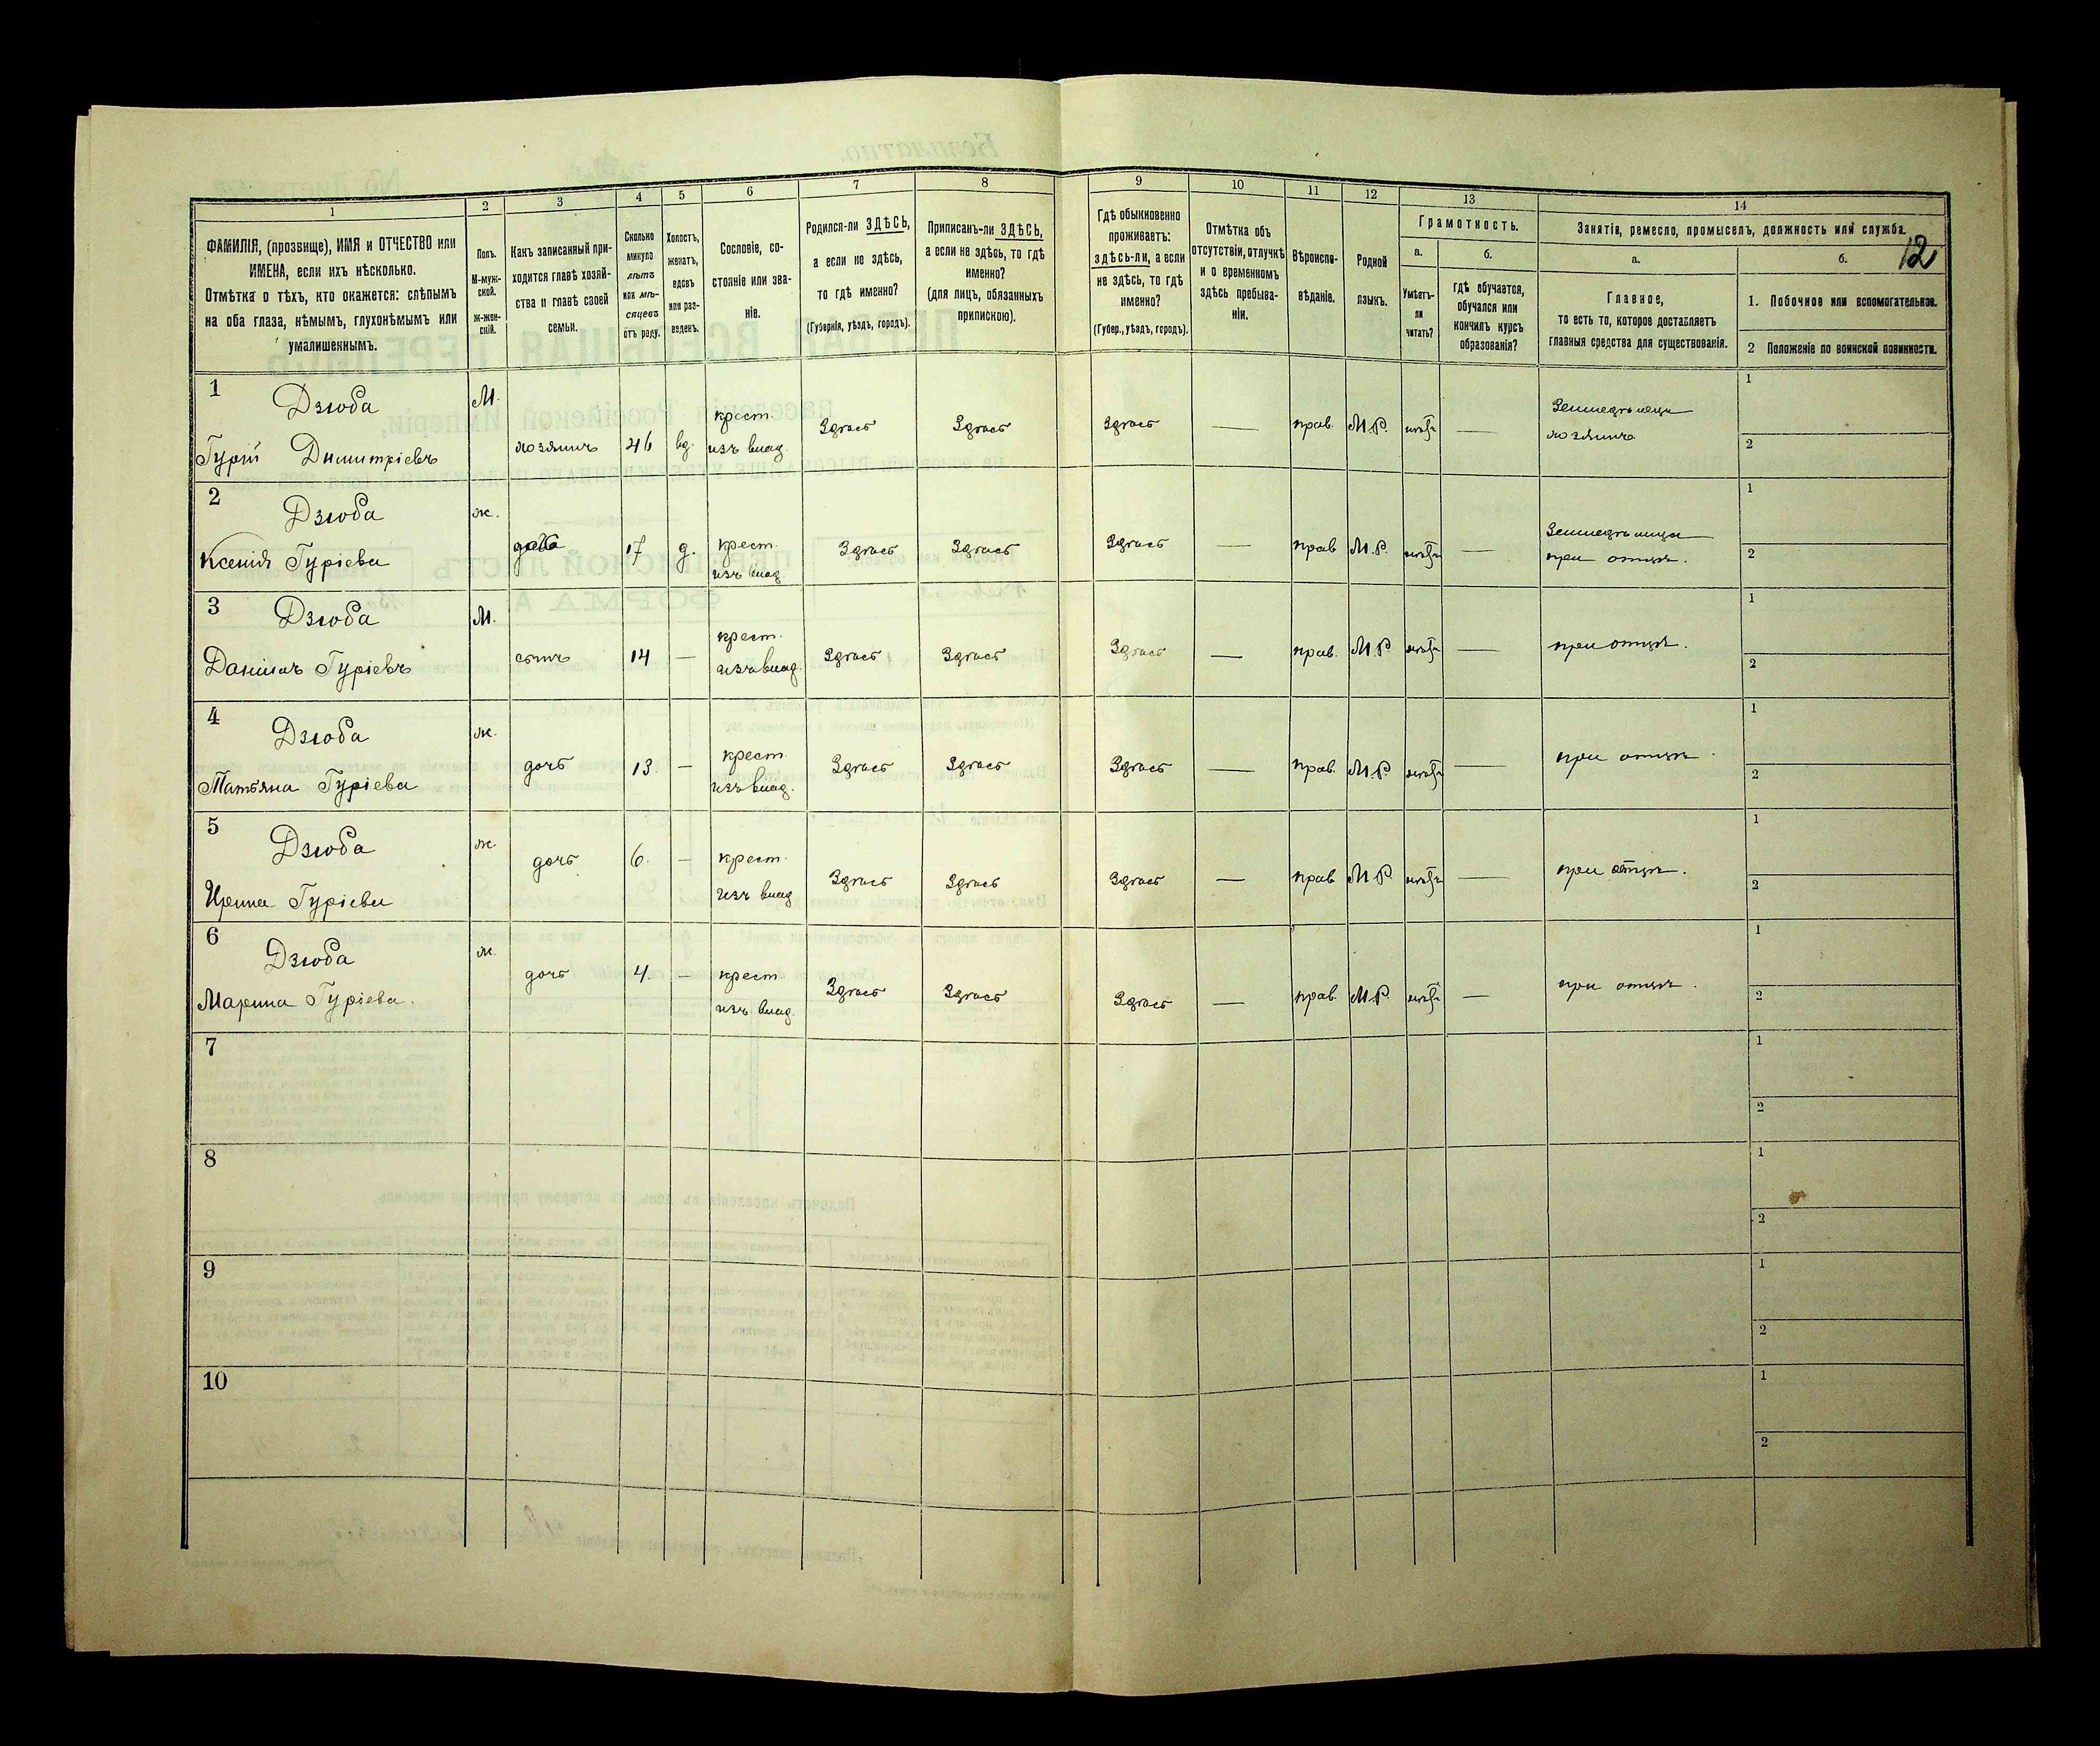 12
1 2 3 4 5 6 7 8 9 10 11 12 13 14
ФАМИЛІЯ, (прозвище), ИМЯ и ОТЧЕСТВО или
ИМЕНА, если ихъ нѣсколько.
Отмѣтка о тѣхъ, кто окажется: слѣпымъ
на оба глаза, нѣмымъ, глухонѣмымъ или
умалишеннымъ.
Полъ.
М-муж-
ской.
Ж-жен-
скій.
Какъ записанный при-
ходится главѣ хозяй-
ства и главѣ своей
семьи.
Сколько
минуло
лѣтъ
или мѣ-
сяцевъ
отъ роду.
Холостъ,
женатъ,
вдовъ
или раз-
веденъ.
Сословіе, со-
стояніе или зва-
ніе.
Родился-ли ЗДѢСЬ,
а если не здѣсь,
то гдѣ именно?
(Губернія, уѣздъ, городъ).
Приписанъ-ли ЗДѢСЬ,
а если не здѣсь, то гдѣ
именно?
(для лицъ, обязанныхъ
припискою).
Гдѣ обыкновенно
проживаетъ:
здѣсь-ли, а если
не здѣсь, то гдѣ
именно?
(Губер., уѣздъ, городъ).
Отмѣтка объ
отсутствіи, отлучкѣ
и о временномъ
здѣсь пребыва-
ніи.
Вѣроиспо-
вѣданіе.
Родной
языкъ.
Грамотность.
а.
Умѣетъ-
ли
читать?
б.
гдѣ обучается,
обучался или
кончилъ курсъ
образованія?
Занятіе, ремесло, промыселъ, должность или служба.
а.
Главное,
то есть то, которое доставляетъ
главныя средства для существованія.
б.
1. Побочное или вспомогательное.
2 Положеніе по воинской повинности.
1 Дзюба М. крест. Здѣсь Здѣсь Здѣсь — прав. М.Р. нѣтъ — Земледѣлецъ 1
Гурій Димитріевъ хозяинъ 46 вд. изъ влад. хозяинъ 2
2 Дзюба ж. крест. Здѣсь Здѣсь Здѣсь — прав М.Р. нѣтъ — Земледѣлица 1
Ксенія Гуріева дочь 17 д. изъ влад при отцѣ. 2
3 Дзюба М. крест. Здѣсь Здѣсь Здѣсь — прав. М.Р нѣтъ — при отцѣ. 1
Даніилъ Гуріевъ сынъ 14 — изъ влад. 2
4 Дзюба ж. крест Здѣсь Здѣсь Здѣсь — прав. М.Р. нѣтъ — при отцѣ. 1
Татьяна Гуріева дочь 13 — изъ влад. 2
5 Дзюба ж дочь 6. — крест. Здѣсь Здѣсь Здѣсь — прав М.Р. нѣтъ — при отцѣ. 1
Ирина Гуріева изъ влад 2
6 Дзюба ж. дочь 4. — крест. Здѣсь Здѣсь Здѣсь — прав. М.Р. нѣтъ — при отцѣ. 1
Марина Гуріева. изъ влад. 2
7 1
2
8 1
2
9 1
2
10 1
2